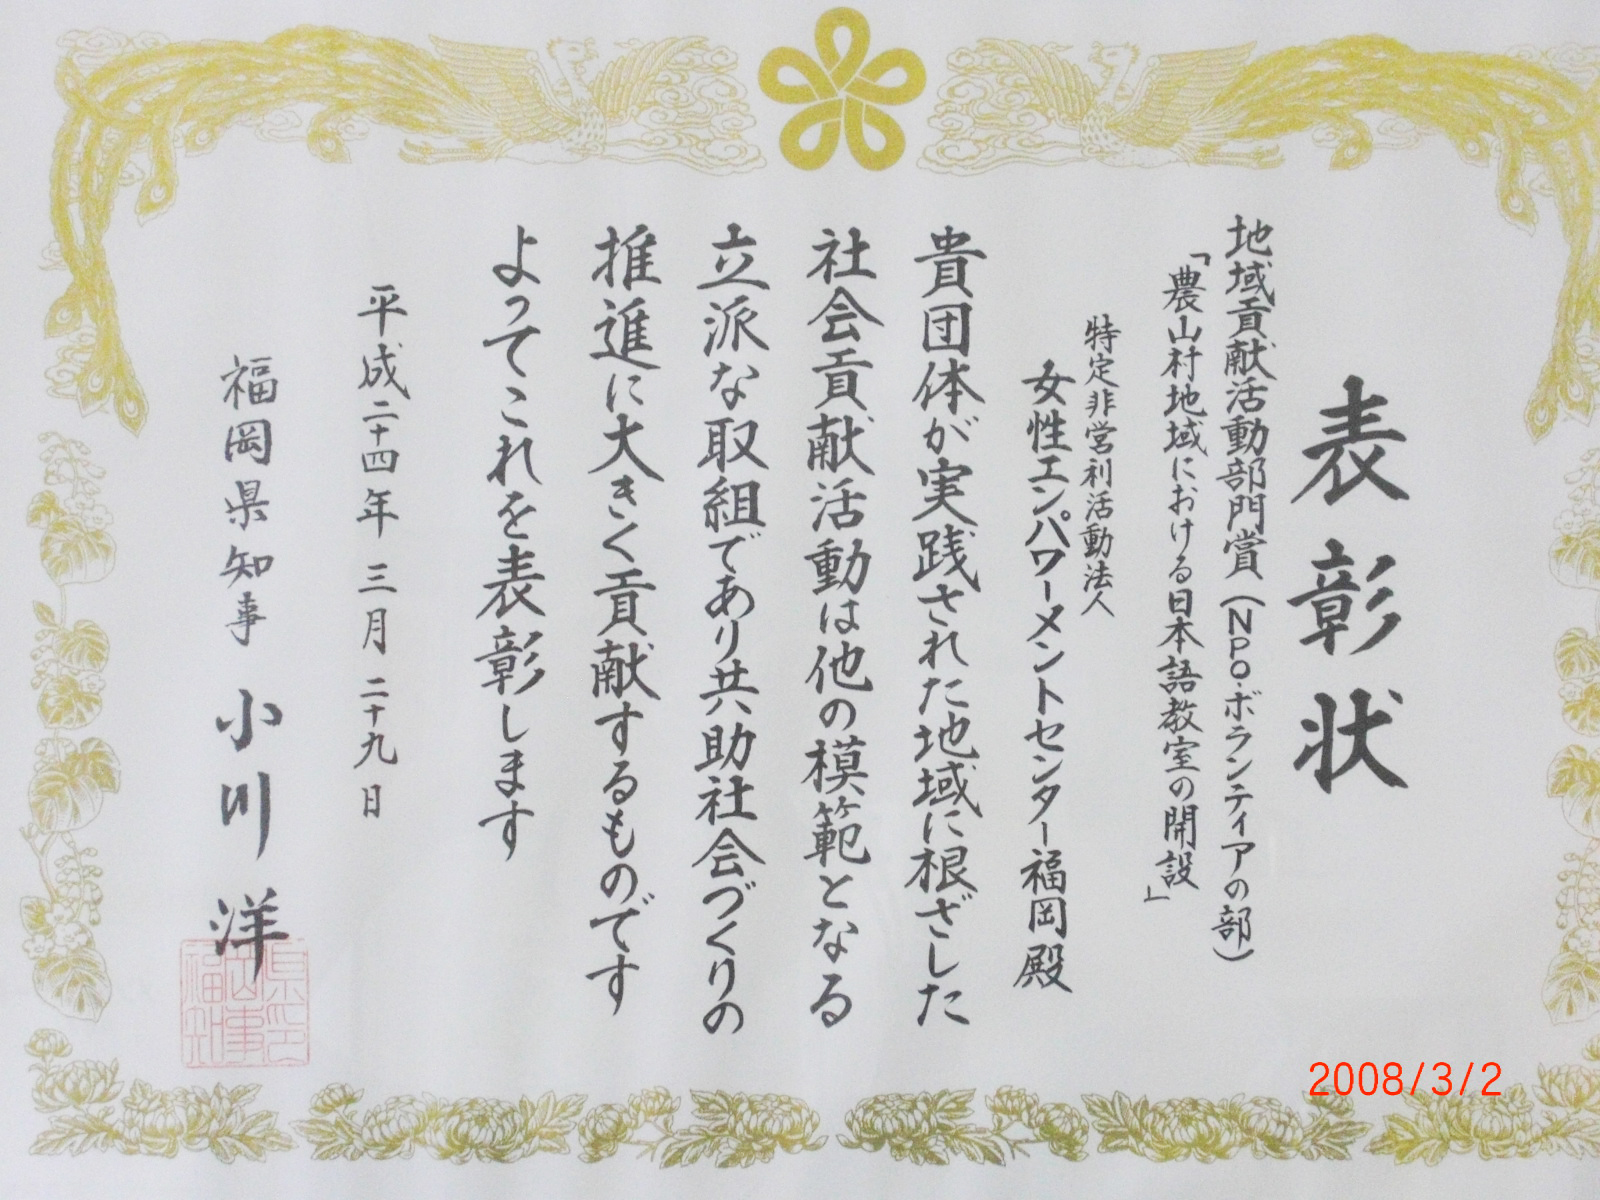 表彰状
地域貢献活動部門賞(NPO・ボランティアの部)
「農山村地域における日本語教室の開設」
特定非営利活動法人
女性エンパワーメントセンター福岡殿
貴団体が実践された地域に根ざした
社会貢献活動は他の模範となる
立派な取組であり共助社会づくりの
推進に大きく貢献するものです
よってこれを表彰します
平成二十四年三月二十九日
福岡県知事 小川洋
県知事印
2008/3/2